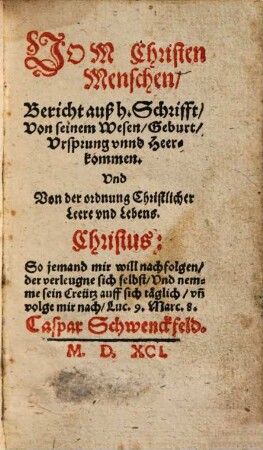 VOM Christen
Menschen/
Bericht auß h. Schrifft/
Von seinem Wesen/Geburt/
Vrsprung vnnd Heer-
kommen.
Und
Von der ordnung Christlicher
Leere vnd Lebens.
Christus:
So jemand mir will nachfolgen/
der verleugne sich selbst/Und nem-
me sein Creütz auff sich täglich/vn̄
volge mir nach/Luc. 9. Marc. 8.
Caspar Schwenckfeld.
M. D. XCI.